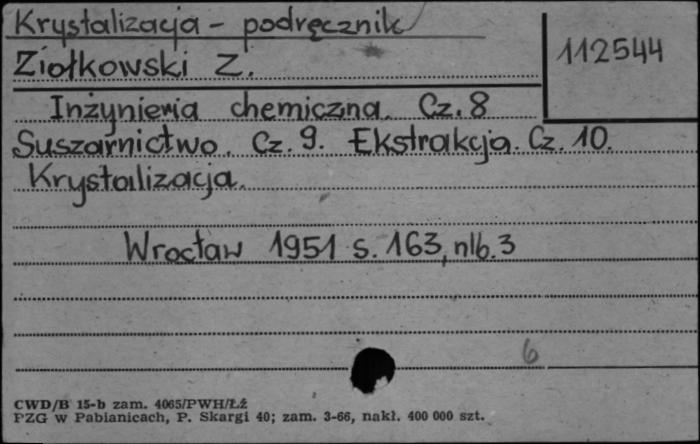 Krystalizacja - podręcznik
Ziołkowski Z.
112544
Inżynieria chemiczna. Cz. 8
Suszarnictwo. Cz. 9. Ekstrakcja. Cz. 10.
Krystalizacja.
Wrocław 1951 s. 163, nlb. 3
6
CWD/B 15-b zam. 4065/PWH/Łż
PZG w Pabianicach, P. Skargi 40; zam. 3-66, nakł. 400 000 szt.